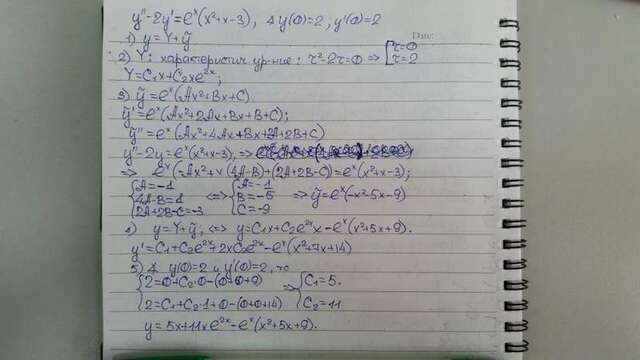 y''-2y'=eˣ(x²+x-3), ∡ y(0)=2; y'(0)=2
Date:
1) y=Y+ỹ
2) Y: характеристич ур-ние: τ²-2τ=0 => [τ=0 τ=2
Y=C₁x+C₂xe²ˣ;
3) ỹ=eˣ(Ax²+Bx+C)
ỹ'=eˣ(Ax²+2Ax+Bx+B+C);
ỹ''=eˣ(Ax²+4Ax+Bx+2A+2B+C)
y''-2y=eˣ(x²+x-3), =>
=> eˣ(-Ax²+x(4A-B)+(2A+2B-C)=eˣ(x²+x-3);
{A=-1 <=> {A=-1
4A-B=1 B=-5 => ỹ=eˣ(-x²-5x-9)
2A+2B-C=-3 C=-9
4) y=Y+ỹ; <=> y=C₁x+C₂e²ˣx-eˣ(x²+5x+9).
y'=C₁+C₂e²ˣ+2xC₂e²ˣ-eˣ(x²+7x+14)
5) ∡ y(0)=2 и y'(0)=2, то
{2=0+C₂·0-(0+0+9) => {C₁=5.
2=C₁+C₂·1+0-(0+0+14) C₂=11
y=5x+11xe²ˣ-eˣ(x²+5x+9).